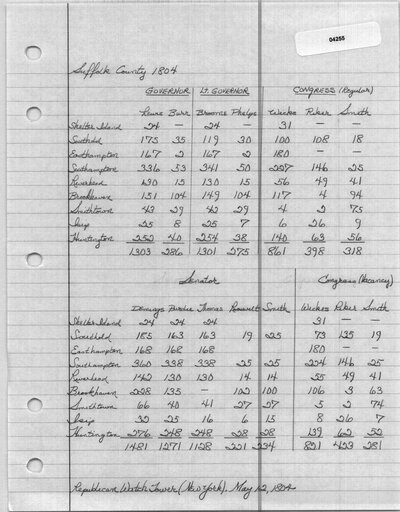 04255
Suffolk County 1804
GOVERNOR LT. GOVERNOR CONGRESS (Regular)
Lewis Burr Broome Phelps Weeks Riker Smith
Shelter Island 24 — 24 — 31 —
Southold 175 35 119 30 100 108 18
Easthampton 167 2 167 2 180 —
Southampton 336 53 341 50 227 146 25
Riverhead 130 15 130 15 56 49 41
Brookhaven 151 104 149 104 117 4 94
Smithtown 43 29 42 29 4 2 75
Islip 25 8 25 7 6 26 9
Huntington 252 40 254 38 140 63 56
1303 286 1301 275 861 398 318
Senator Congress (Vacancy)
Denings Burdie Thomas Roosevelt Smith Weekes Riker Smith
Shelter Island 24 24 24 31 —
Southold 185 163 163 19 25 73 135 19
Easthampton 168 168 168 180 —
Southampton 360 338 338 25 25 224 146 25
Riverhead 142 130 130 14 14 55 49 41
Brookhaven 228 135 — 102 100 106 3 63
Smithtown 66 40 41 27 27 5 2 74
Islip 32 25 16 6 15 8 26 7
Huntington 276 248 248 28 28 139 62 52
1481 1271 1128 221 234 821 423 281
Republican Watch Tower (New York), May 12, 1804